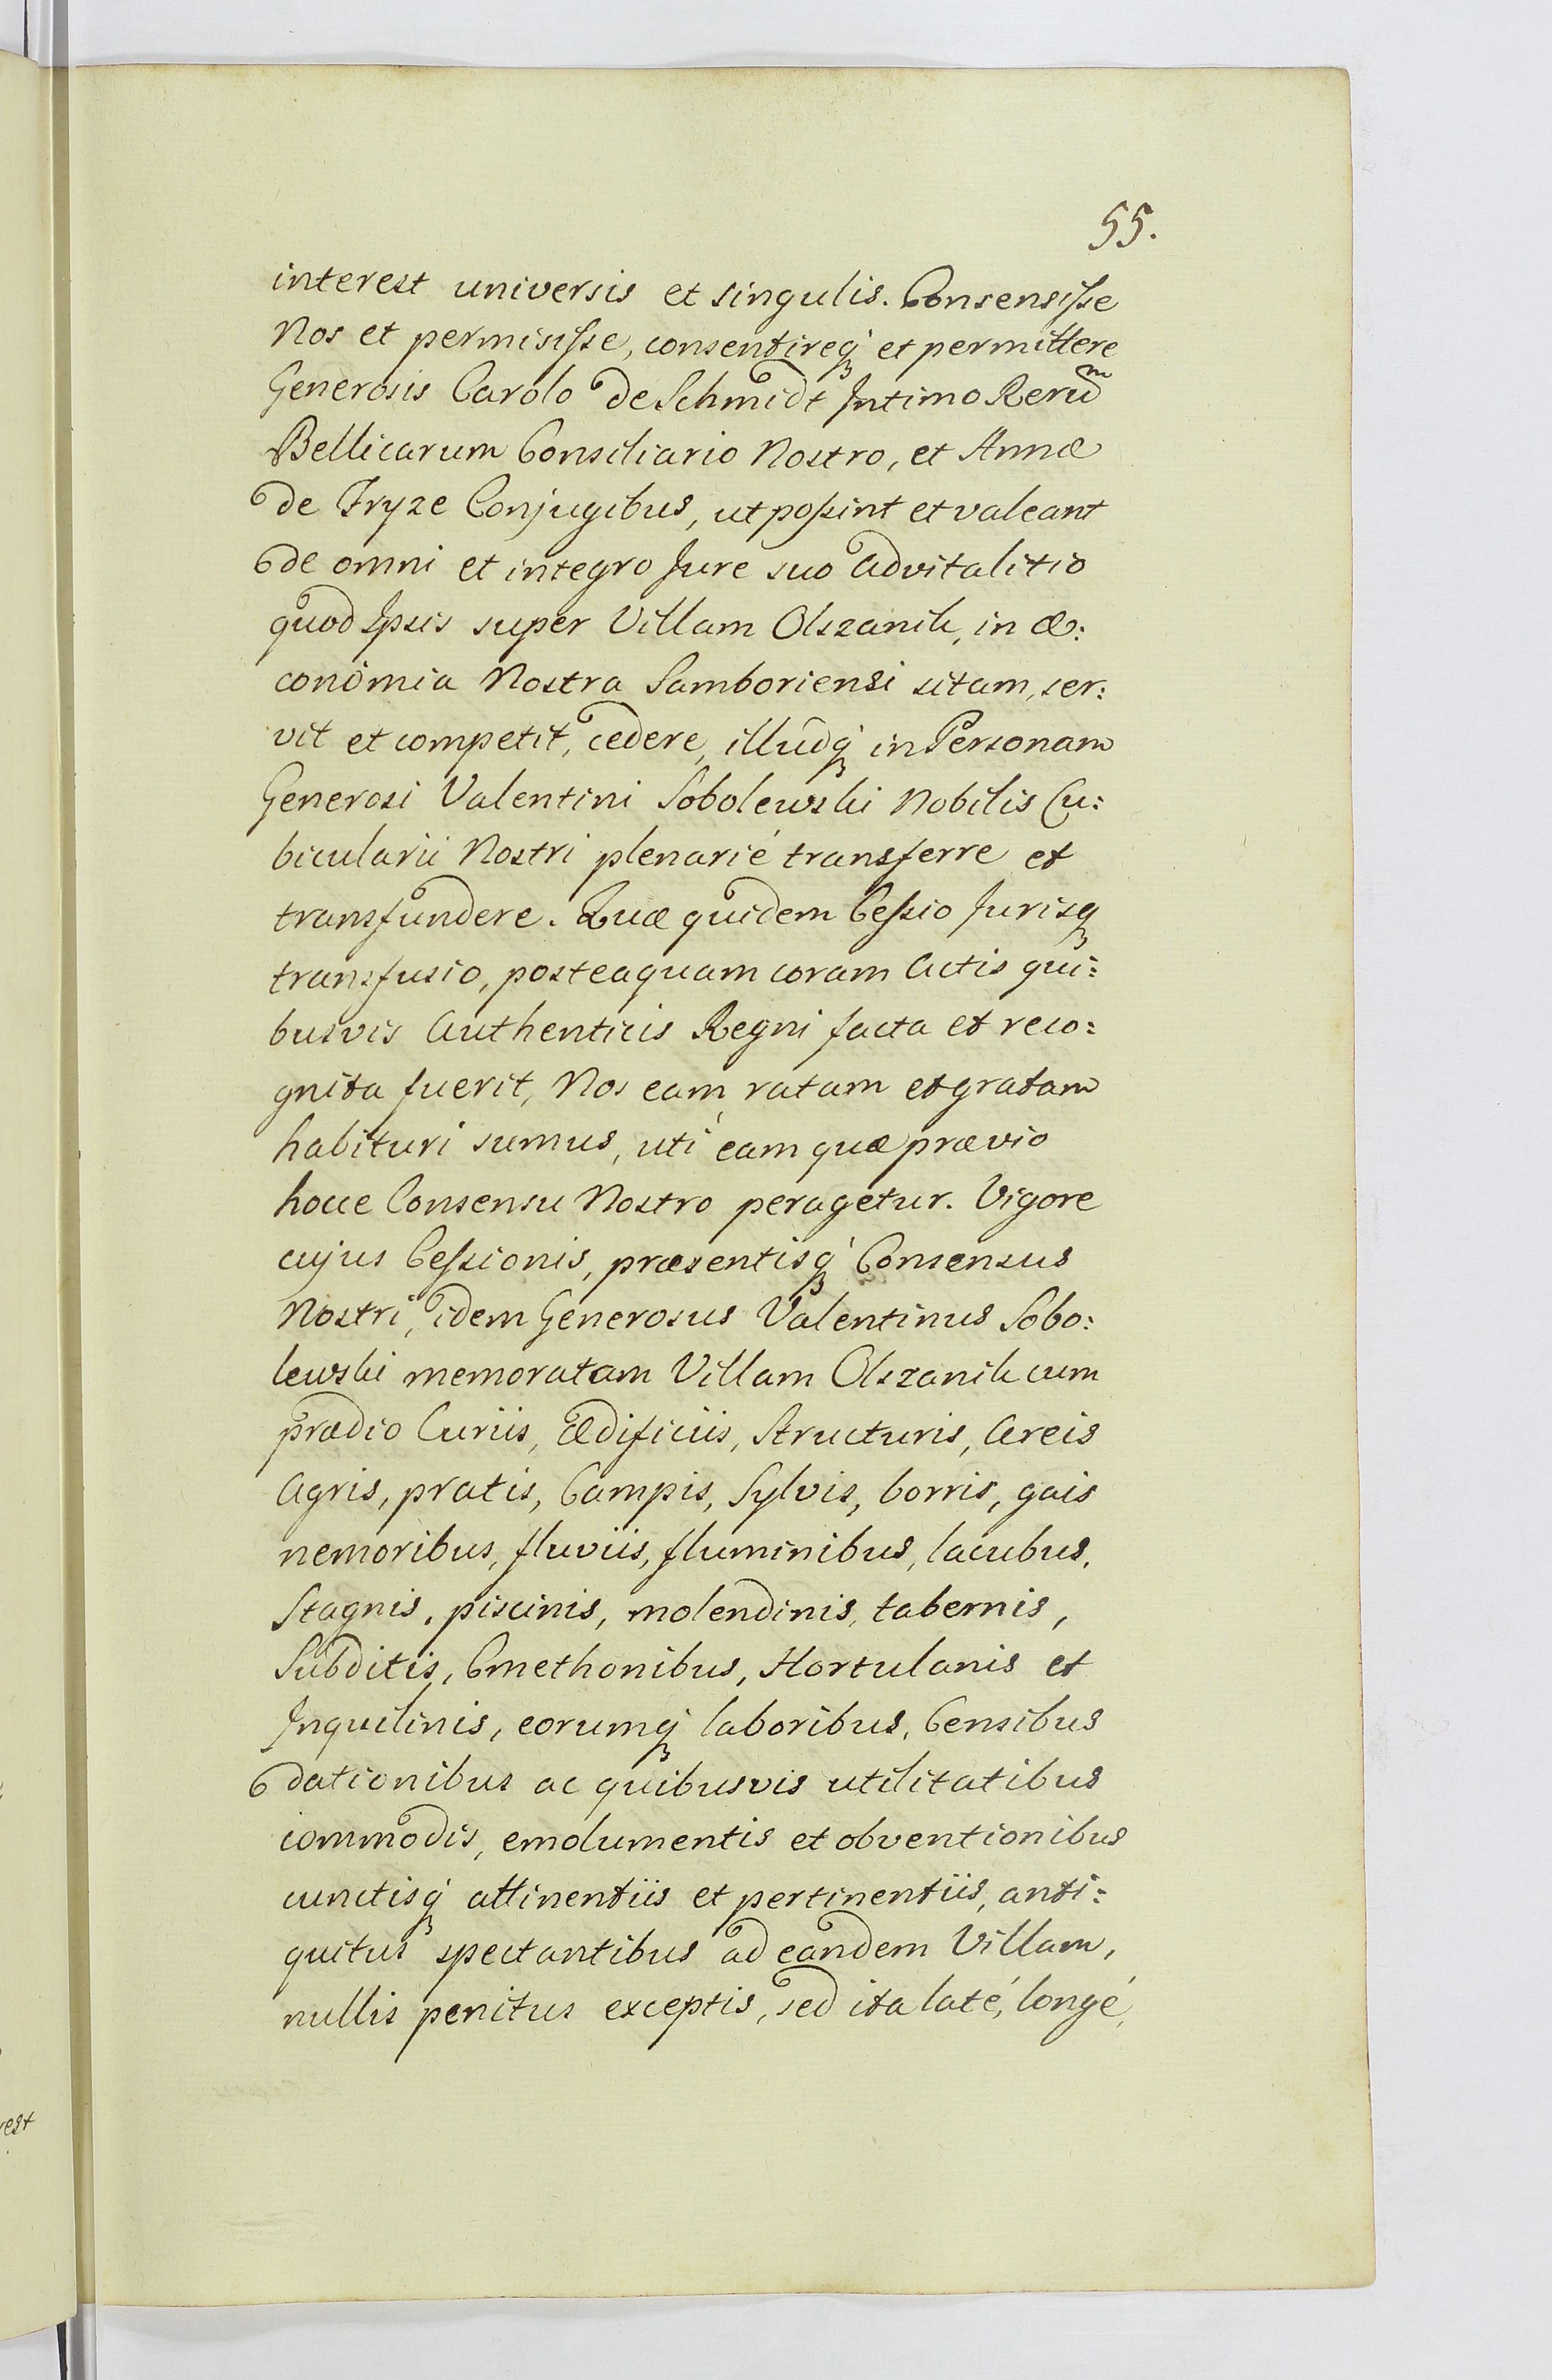 55.
interest universis et singulis. Consensisse
Nos et permisisse, consentireq̃ et permittere
Generosis Carolo de Schmidt Intimo Rerũm
Bellicarum Consiliario Nostro, et Annæ
de Fryze Conjugibus, ut possint et valeant
de omni et integro Jure suo advitalitio
quod Ipsis super Villam Olszanik, in œ:
conomia Nostra Samboriensi sitam, ser:
vit et competit, cedere, illudq̃ in Personam
Generosi Valentini Sobolewski Nobilis Cu:
bicularii Nostri plenarié transferre et
transfundere. Quæ quidem Cessio Jurisq̃
transfusio, posteaquam coram Actis qui:
busvis Authenticis Regni facta et reco:
gnita fuerit, Nos eam ratam et gratam
habituri sumus, uti eam quæ prævio
hocce Consensu Nostro peragetur. Vigore
cujus Cessionis, præsentisq̃ Consensus
Nostri, idem Generosus Valentinus Sobo:
lewski memoratam Villam Olszanik cum
prædio Curiis, ædificiis, Structuris, Areis
Agris, pratis, Campis, Sylvis, borris, gais
nemoribus, fluviis, fluminibus, lacubus,
Stagnis, piscinis, molendinis, tabernis,
Subditis, Cmethonibus, Hortulanis et
Inquilinis, eorumq̃ laboribus, Censibus
dationibus ac quibusvis utilitatibus
commodis, emolumentis et obventionibus
cunctisq̃ attinentiis et pertinentiis, anti:
quitus spectantibus ad eandem Villam,
nullis penitus exceptis, sed ita laté, longé,